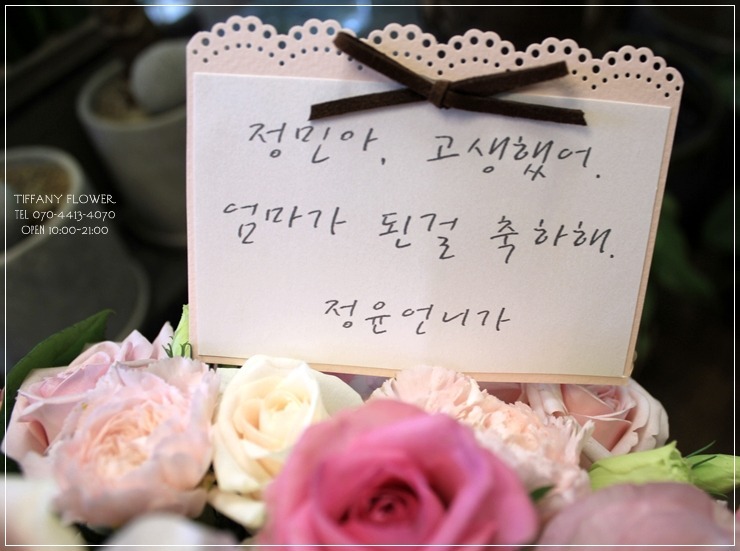 정민아, 고생했어.
엄마가 된걸 축하해.
정윤언니가
TIFFANY FLOWER
TEL 070-4413-4070
OPEN 10:00~21:00